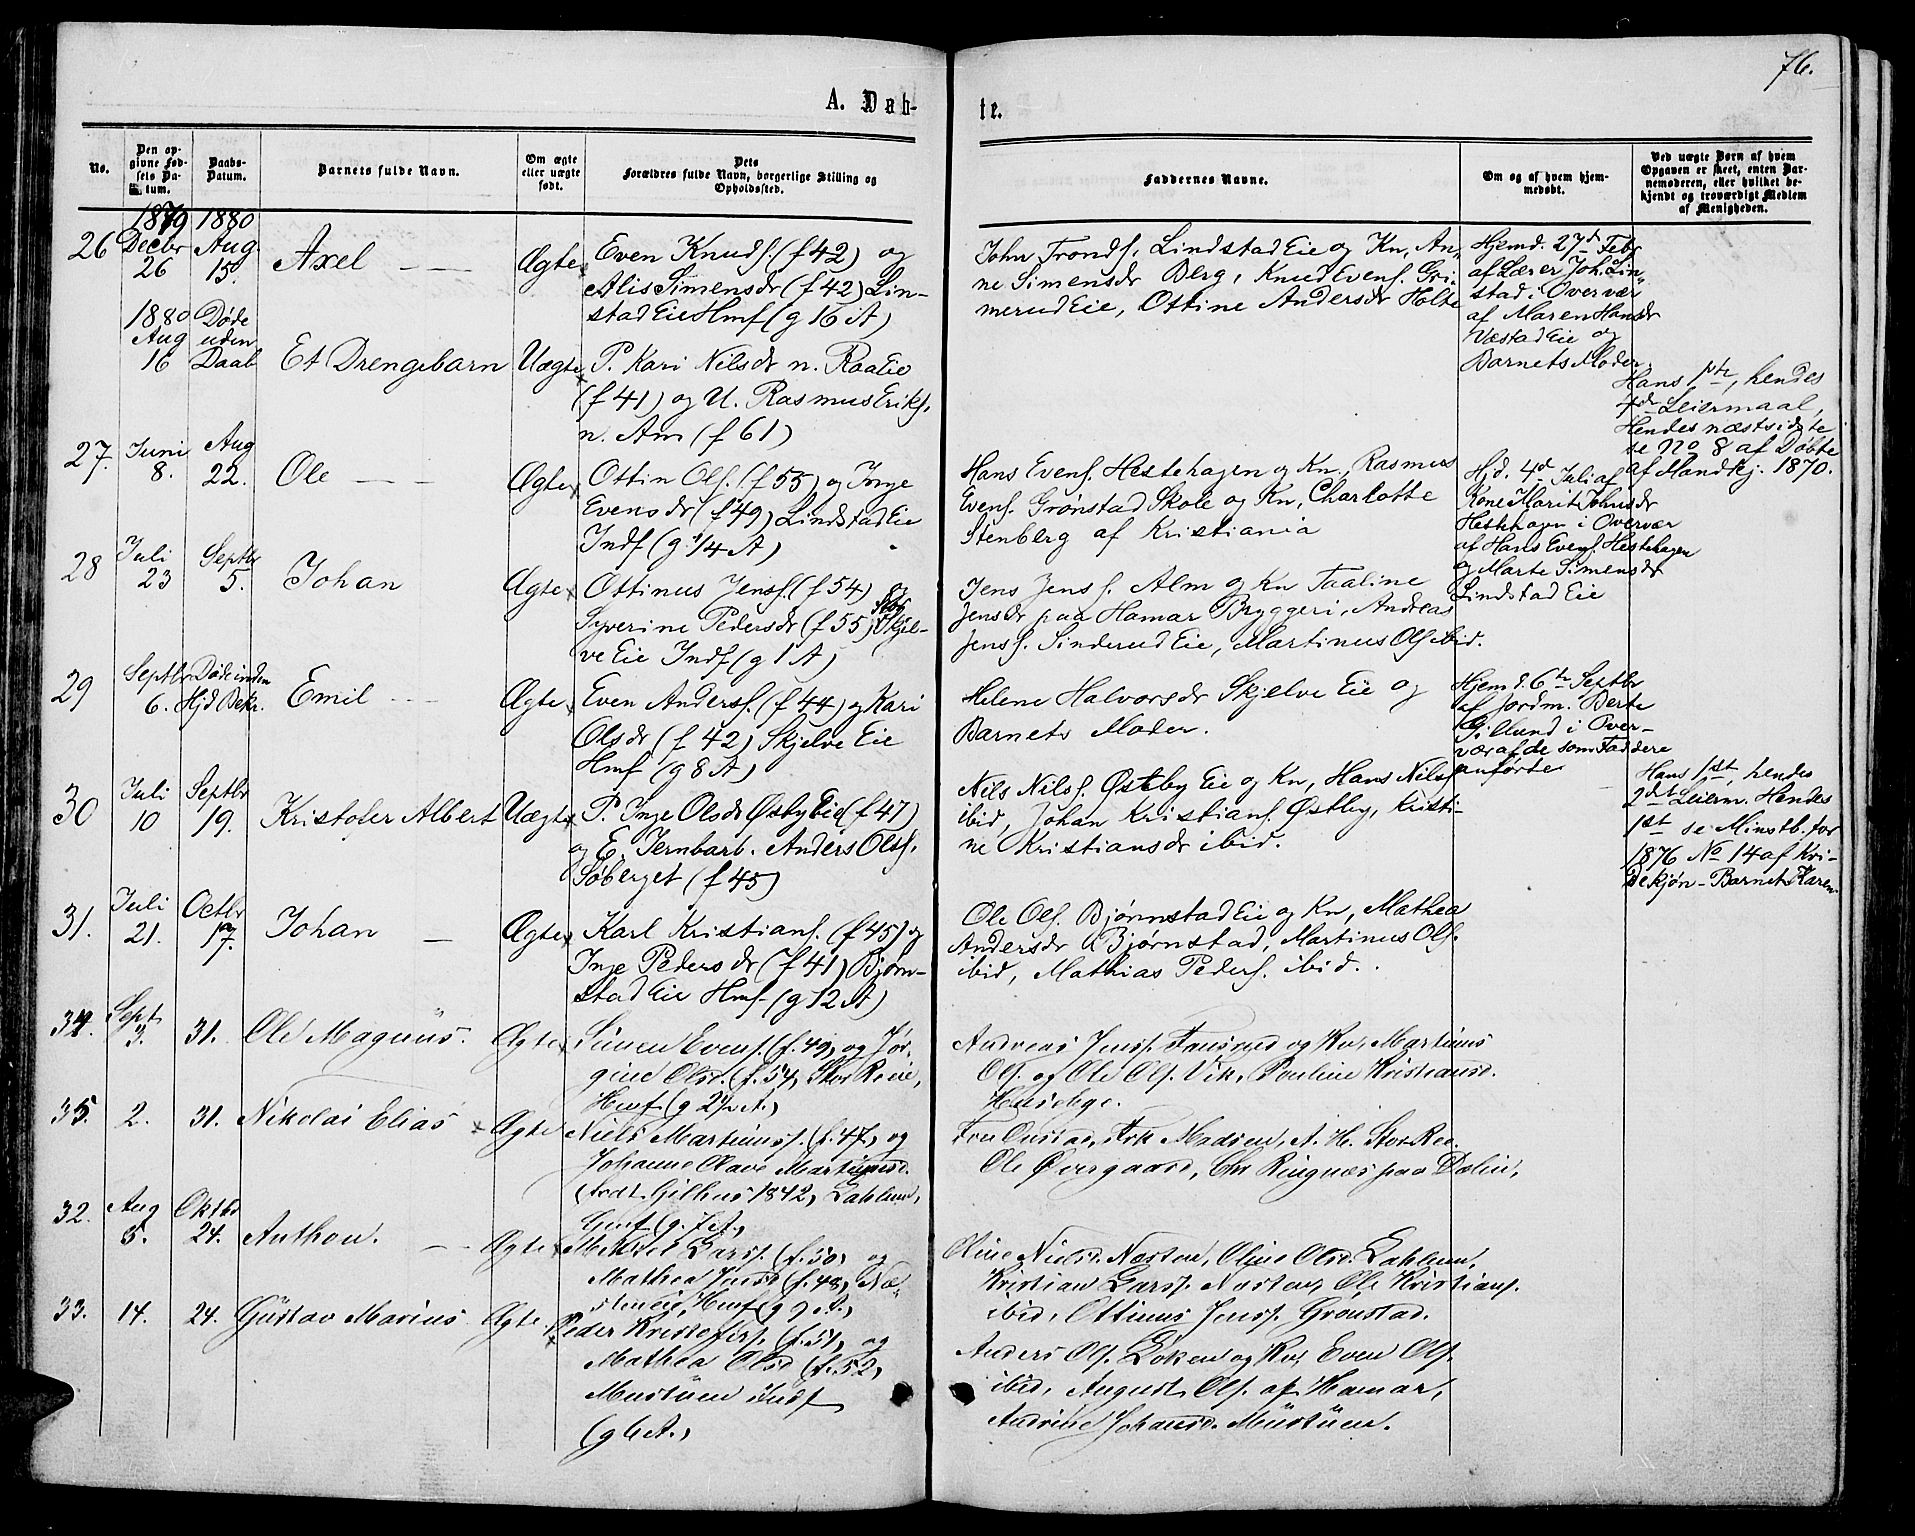 76.
A. Døb-
te.
No.
Den op-
givne Fød-
sels Da-
tum.
Daabs-
Datum.
Barnets fulde Navn.
Om ægte
eller uægte
født.
Dets
Forældres fulde Navn, borgerlige Stilling og
Opholdssted.
Faddernes Navne.
Om og af hvem hjem-
medøbt.
Ved uægte Børn af hvem
Opgaven er skeet, enten Bar-
nemoderen, eller hvilket be-
kjendt og troværdigt Medlem
af Menigheden.
1879 1880
26 Decbr 26 Aug. 15. Axel Ægte
Even Knuds. (f 42) og
Alis Simensdr (f 42) Lin-
stad Eie Hmf (g 16 A)
John Tronds. Lindstad Eie og Kn, An-
ne Simensdr Berg, Knud Evens. Gri-
merud Eie, Ottine Andersdr Holte
Hjemd. 27d Febr
af Lærer Joh. Lin-
stad i Overvær
af Maren Hansdr
Væstad Eie og
Barnets Moder
1880
Aug 16 Døde uden Daab Et Drengebarn Uægte
P. Kari Nilsdr n. Raaeie
(f 41) og U. Rasmus Eriks.
n. Am (f 61)
Hans 1ste, hendes
4de Leiermaal,
Hendes næstsidste
se No 8 af Døbte
af Mandkj. 1870.
27. Juni 8. Aug 22. Ole Ægte
Ottin Ols. (f 55) og Inge
Evensdr (f 49) Lindstad Eie
Indf (g 1/4 A)
Hans Evens. Hestehagen og Kn, Rasmus
Evens. Grønstad Skole og Kn, Charlotte
Stenberg af Kristiania
Hjd. 4d Juli af
Kone Marit Johnsdr
Hestehagen i Overvær
af Hans Evens. Hestehagen
og Marte Simensdr
Lindstad Eie
28 Juli 23 Septbr 5. Johan Ægte
Ottinus Jens. (f 54) og
Syverine Pedersdr (f 55) Stor Skjel-
ve Eie Indf (g 1 A)
Jens Jens. Alm og Kn Taaline
Jensdr paa Hamar Bryggeri, Andreas
Jens. Sinderud Eie, Martinus Ols ibid.
29 Septbr 6. Døde inden Hjd Bekr. Emil Ægte
Even Anders. (f 44) og Kari
Olsdr (f 42) Skjelve Eie
Hmf (g 8 A)
Helene Halvorsdr Skjelve Eie og
Barnets Moder.
Hjemd. 6te Septbr
af Jordm. Berte
Gillund i Over-
vær af de som Faddere
anførte
30 Juli 10 Septbr 19. Kristofer Albert Uægte
P. Inge Olsdr Østby Eie (f 47)
og E. Jernbarb. Anders Ols.
Søberget (f 45)
Nels Nils. Østby Eie og Kn, Hans Nils.
ibid, Johan Kristians. Østby, Kristi-
ne Kristiansdr ibid.
Hans 1st, hendes
2det Leierm. Hendes
1st se Minstb. for
1876 No 14 af Kvi-
dekjøn - Barnet Karen
31. Juli 21. Octbr 17. Johan Ægte
Karl Kristians. (f 45) og
Inge Pedersdr (f 41) Bjørn-
stad Eie Hmf (g 12 A)
Ole Ols. Bjørnstad Eie og Kn, Mathea
Andersdr Bjørnstad, Martinus Ols.
ibid, Mathias Peders. ibid.
34. Sept. 3. 31. Ole Magnus. Ægte
Simen Evens. (f. 49) og Jør-
gine Olsd. (f. 54) Stor Ree eie,
Hmf (g 2 1/2 A.)
Andreas Jens. og Kn, Martinus
Ols. og Ole Ols. Vik, Pauline Kristiansd.
Huseby.
35. 2. 31. Nikolai Elias Ægte
Niels Martinus. (f. 47) og
Johanne Olave Martinusd.
(født 1842) Dahlum,
Gmf (g. 7 A.)
Fru Onstad, Frk Madsen, A. H. Stor Ree.
Ole Overgaard, Chr Ringnæs paa Dælin,
32. Aug 5. Oktbr 24. Anthon. Ægte
Mikkel Lars. (f. 50) og
Mathea Jensd (f. 48) Næ-
sten eie, Hmf (g 9 A.)
Oline Nielsd. Næsten, Oline Olsd. Dahlum,
Kristian Lars. Næsten, Ole Kristians.
ibid, Ottinus Jens. Grønstad.
33. 14. 24. Gustav Marius Ægte
Peder Kristofers. (f. 51) og
Mathea Olsd (f. 52)
Mustuen Indf
(g 6 A.)
Anders Ols. Løken og Kn, Even Ols.
ibid, August Ols. af Hamar,
Andrine Johansd. Mustuen.